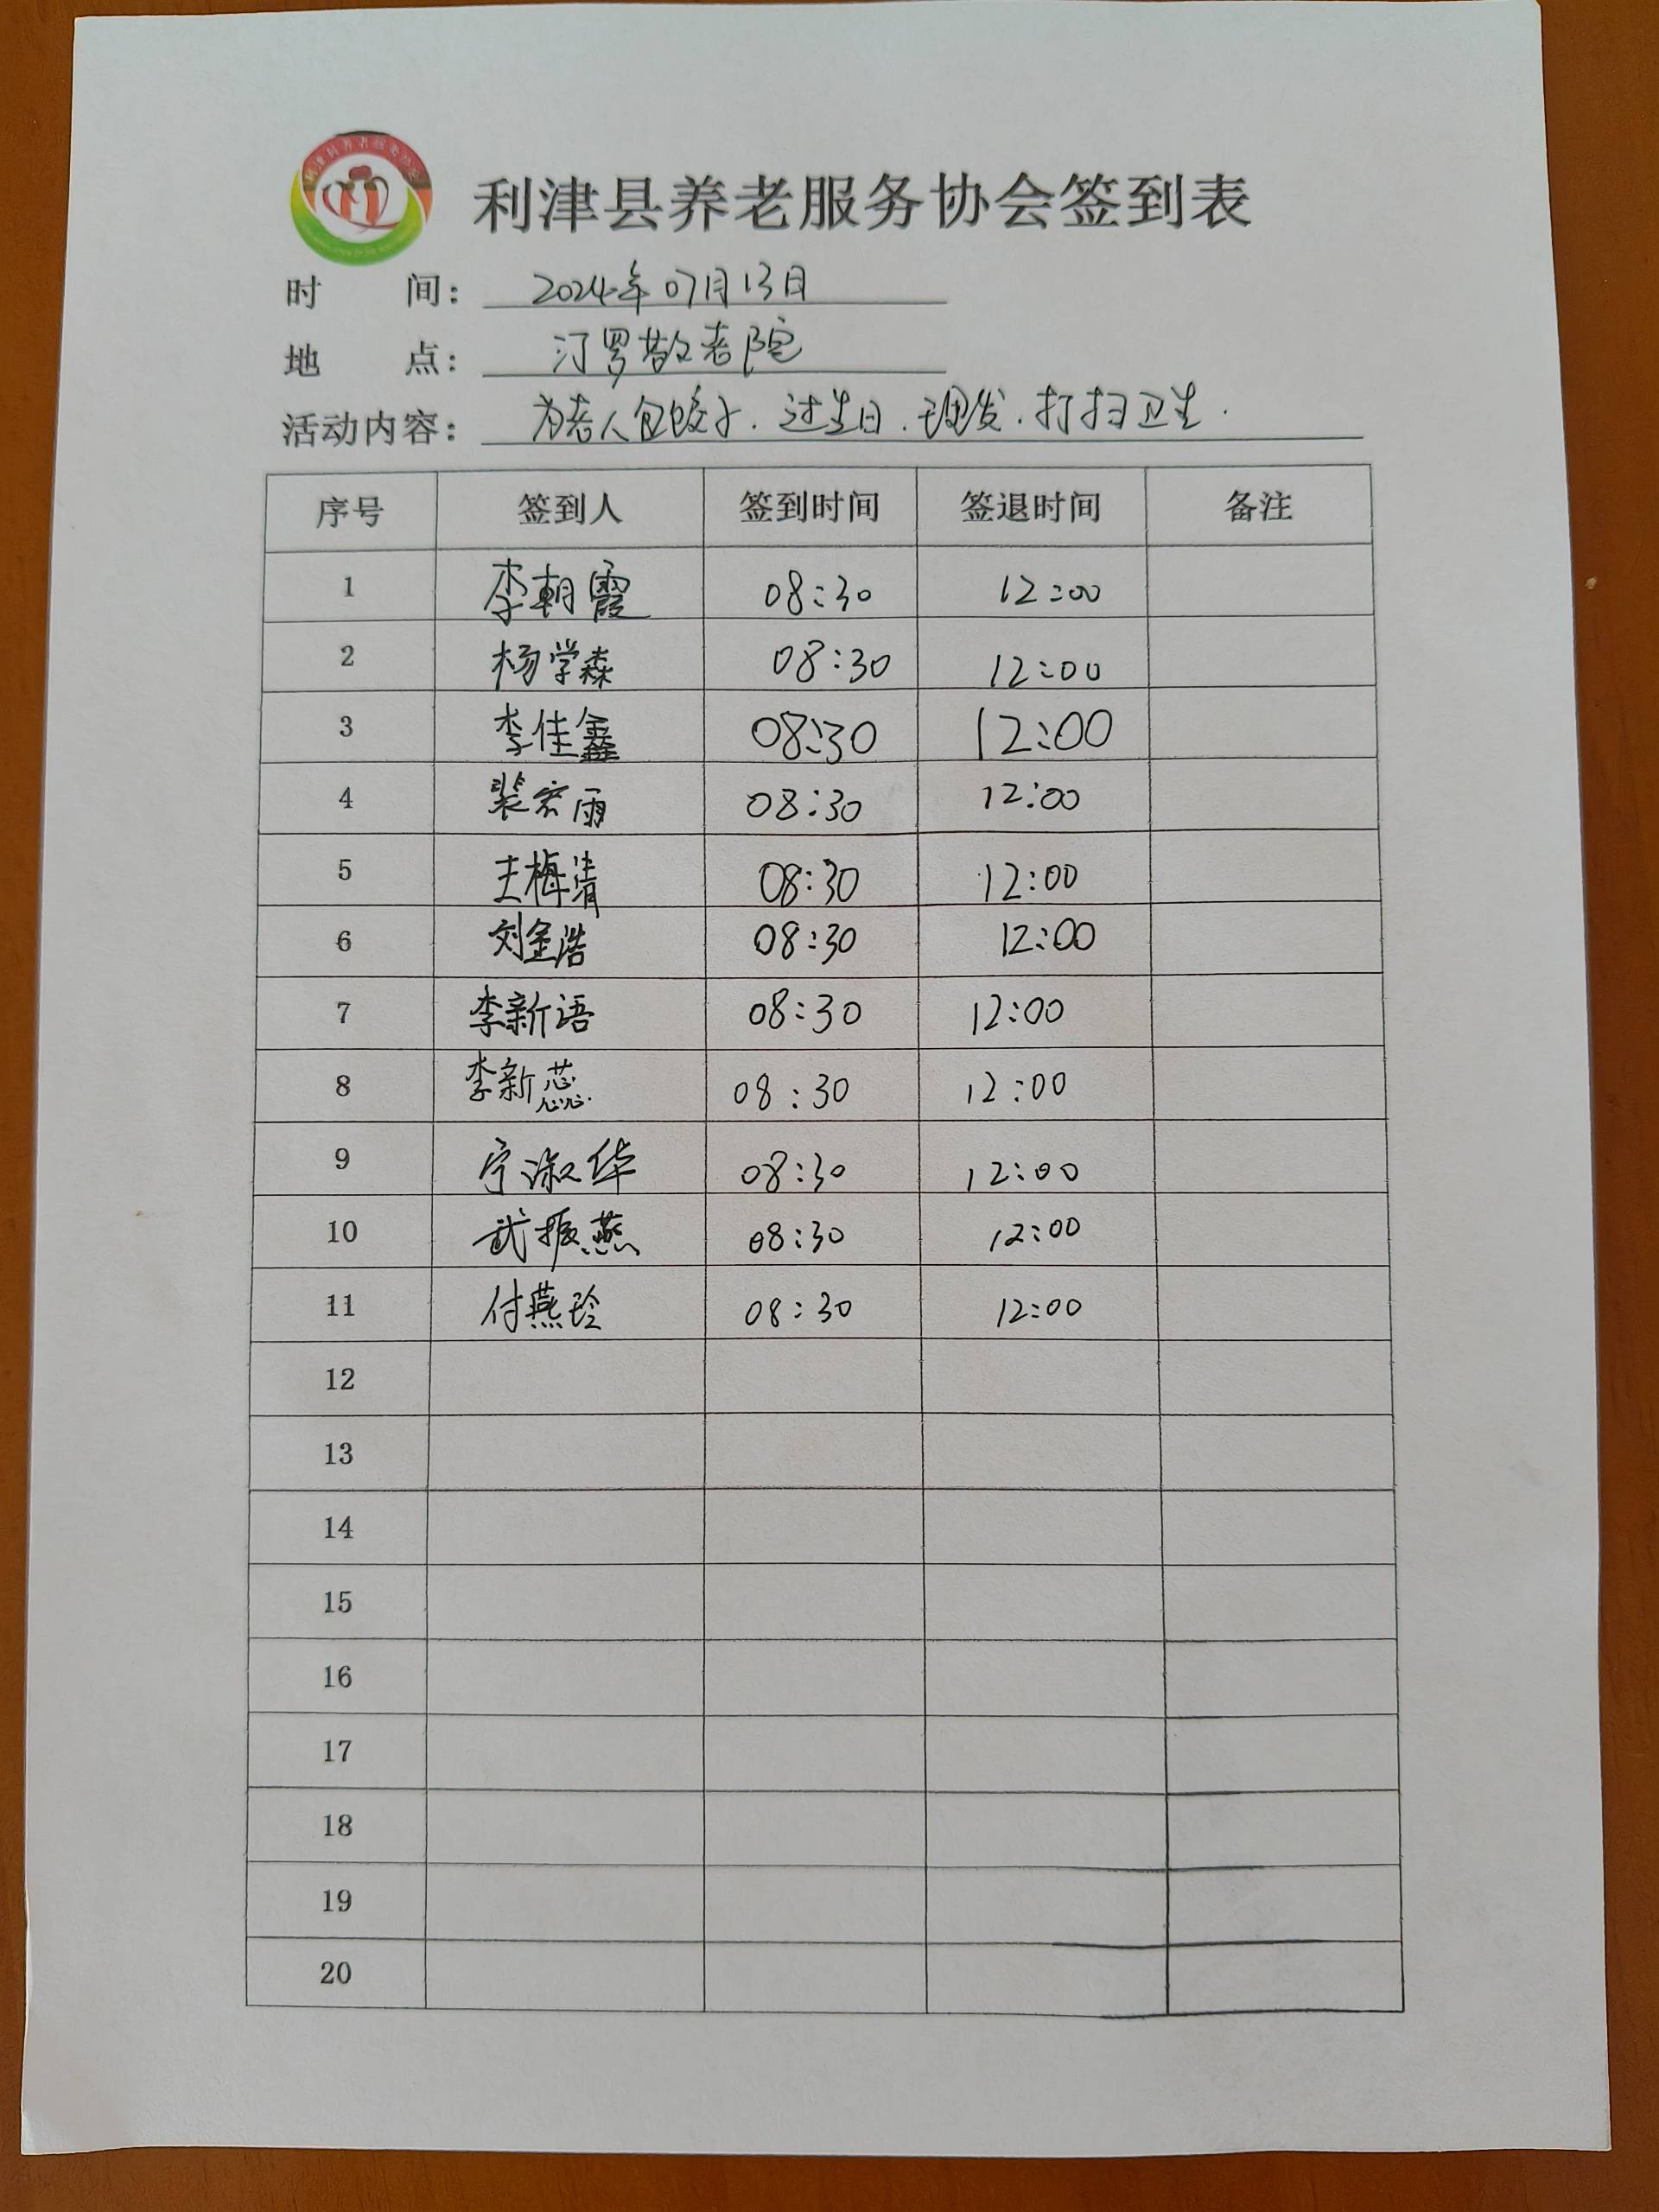 利津县养老服务协会
利津县养老服务协会签到表
时 间： 2024年07月13日
地 点： 汀罗敬老院
活动内容： 为老人包饺子．过生日．理发．打扫卫生．
序号 签到人 签到时间 签退时间 备注
1 李朝霞 08:30 12:00
2 杨学森 08:30 12:00
3 李佳鑫 08:30 12:00
4 裴宏雨 08:30 12:00
5 王梅清 08:30 12:00
6 刘金浩 08:30 12:00
7 李新语 08:30 12:00
8 李新蕊 08:30 12:00
9 宁淑华 08:30 12:00
10 武振燕 08:30 12:00
11 付燕玲 08:30 12:00
12
13
14
15
16
17
18
19
20